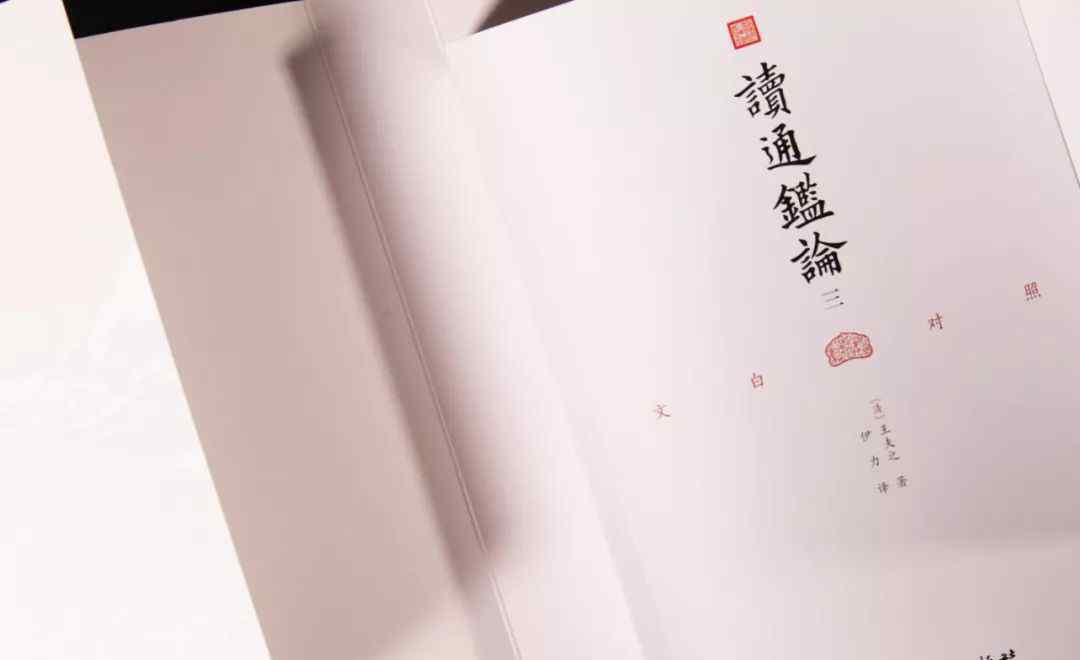 讀通鑑論
三
文白对照
〔清〕王夫之 著
伊力 译